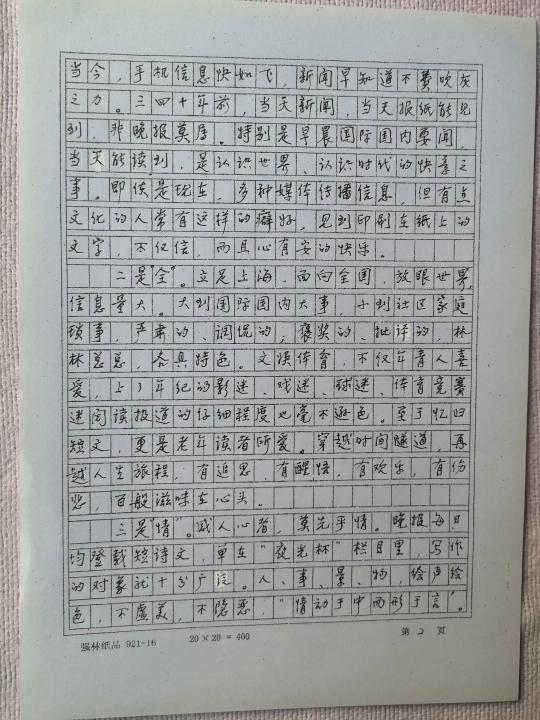 当今，手机信息快如飞，新闻早知道不费吹灰
之力。三四十年前，当天新闻，当天报纸能见
到，非晚报莫属。特别是早晨国际国内要闻，
当天能读到，是认识世界、认识时代的快意之
事。即使是现在，多种媒体传播信息，但有点
文化的人常有这样的癖好，见到印刷在纸上的
文字，不仅信，而且心有安的快乐。
二是“全”。立足上海，面向全国，放眼世界，
信息量大。大到国际国内大事，小到社区家庭
琐事，严肃的、调侃的，褒奖的、批评的，林
林总总，各具特色。文娱体育，不仅年青人喜
爱，上了年纪的影迷、戏迷、球迷、体育竞赛
迷阅读报道的仔细程度也毫不逊色。至于忆旧
短文，更是老年读者所爱。穿越时间隧道，再
越人生旅程，有追思，有醒悟，有欢乐，有伤
悲，百般滋味在心头。
三是“情”。感人心者，莫先乎情。晚报每日
均登载短诗文，单在“夜光杯”栏目里，写作
的对象就十分广泛。人、事、景、物，绘声绘
色，不虚美，不隐恶，“情动于中而形于言”。
强林纸品 921-16 20×20=400 第 2 页